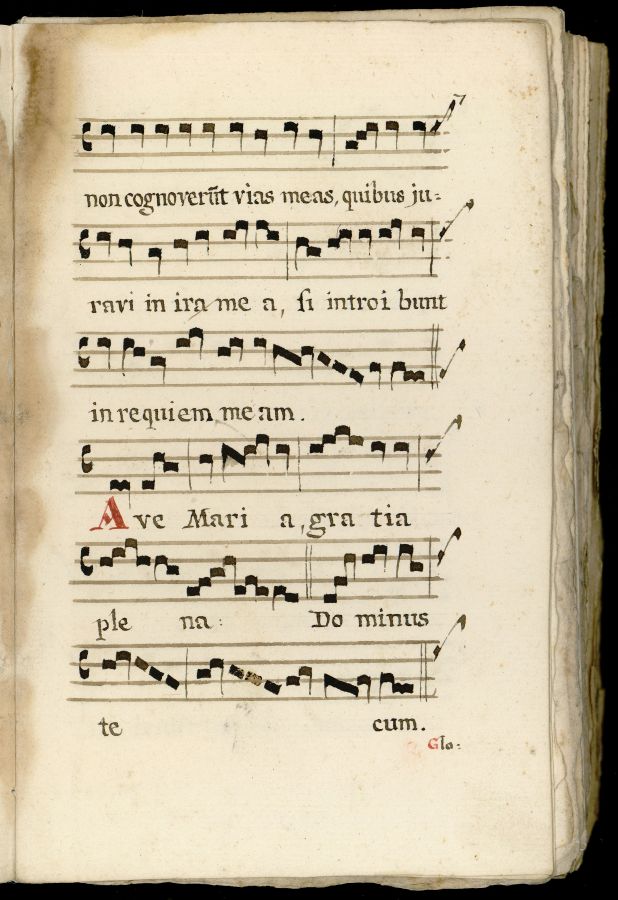 7
non cognoverūt vias meas, quibus ju=
ravi in ira me a, si introi bunt
in requiem me am.
Ave Mari a, gra tia
ple na: Do minus
te cum.
Glo: